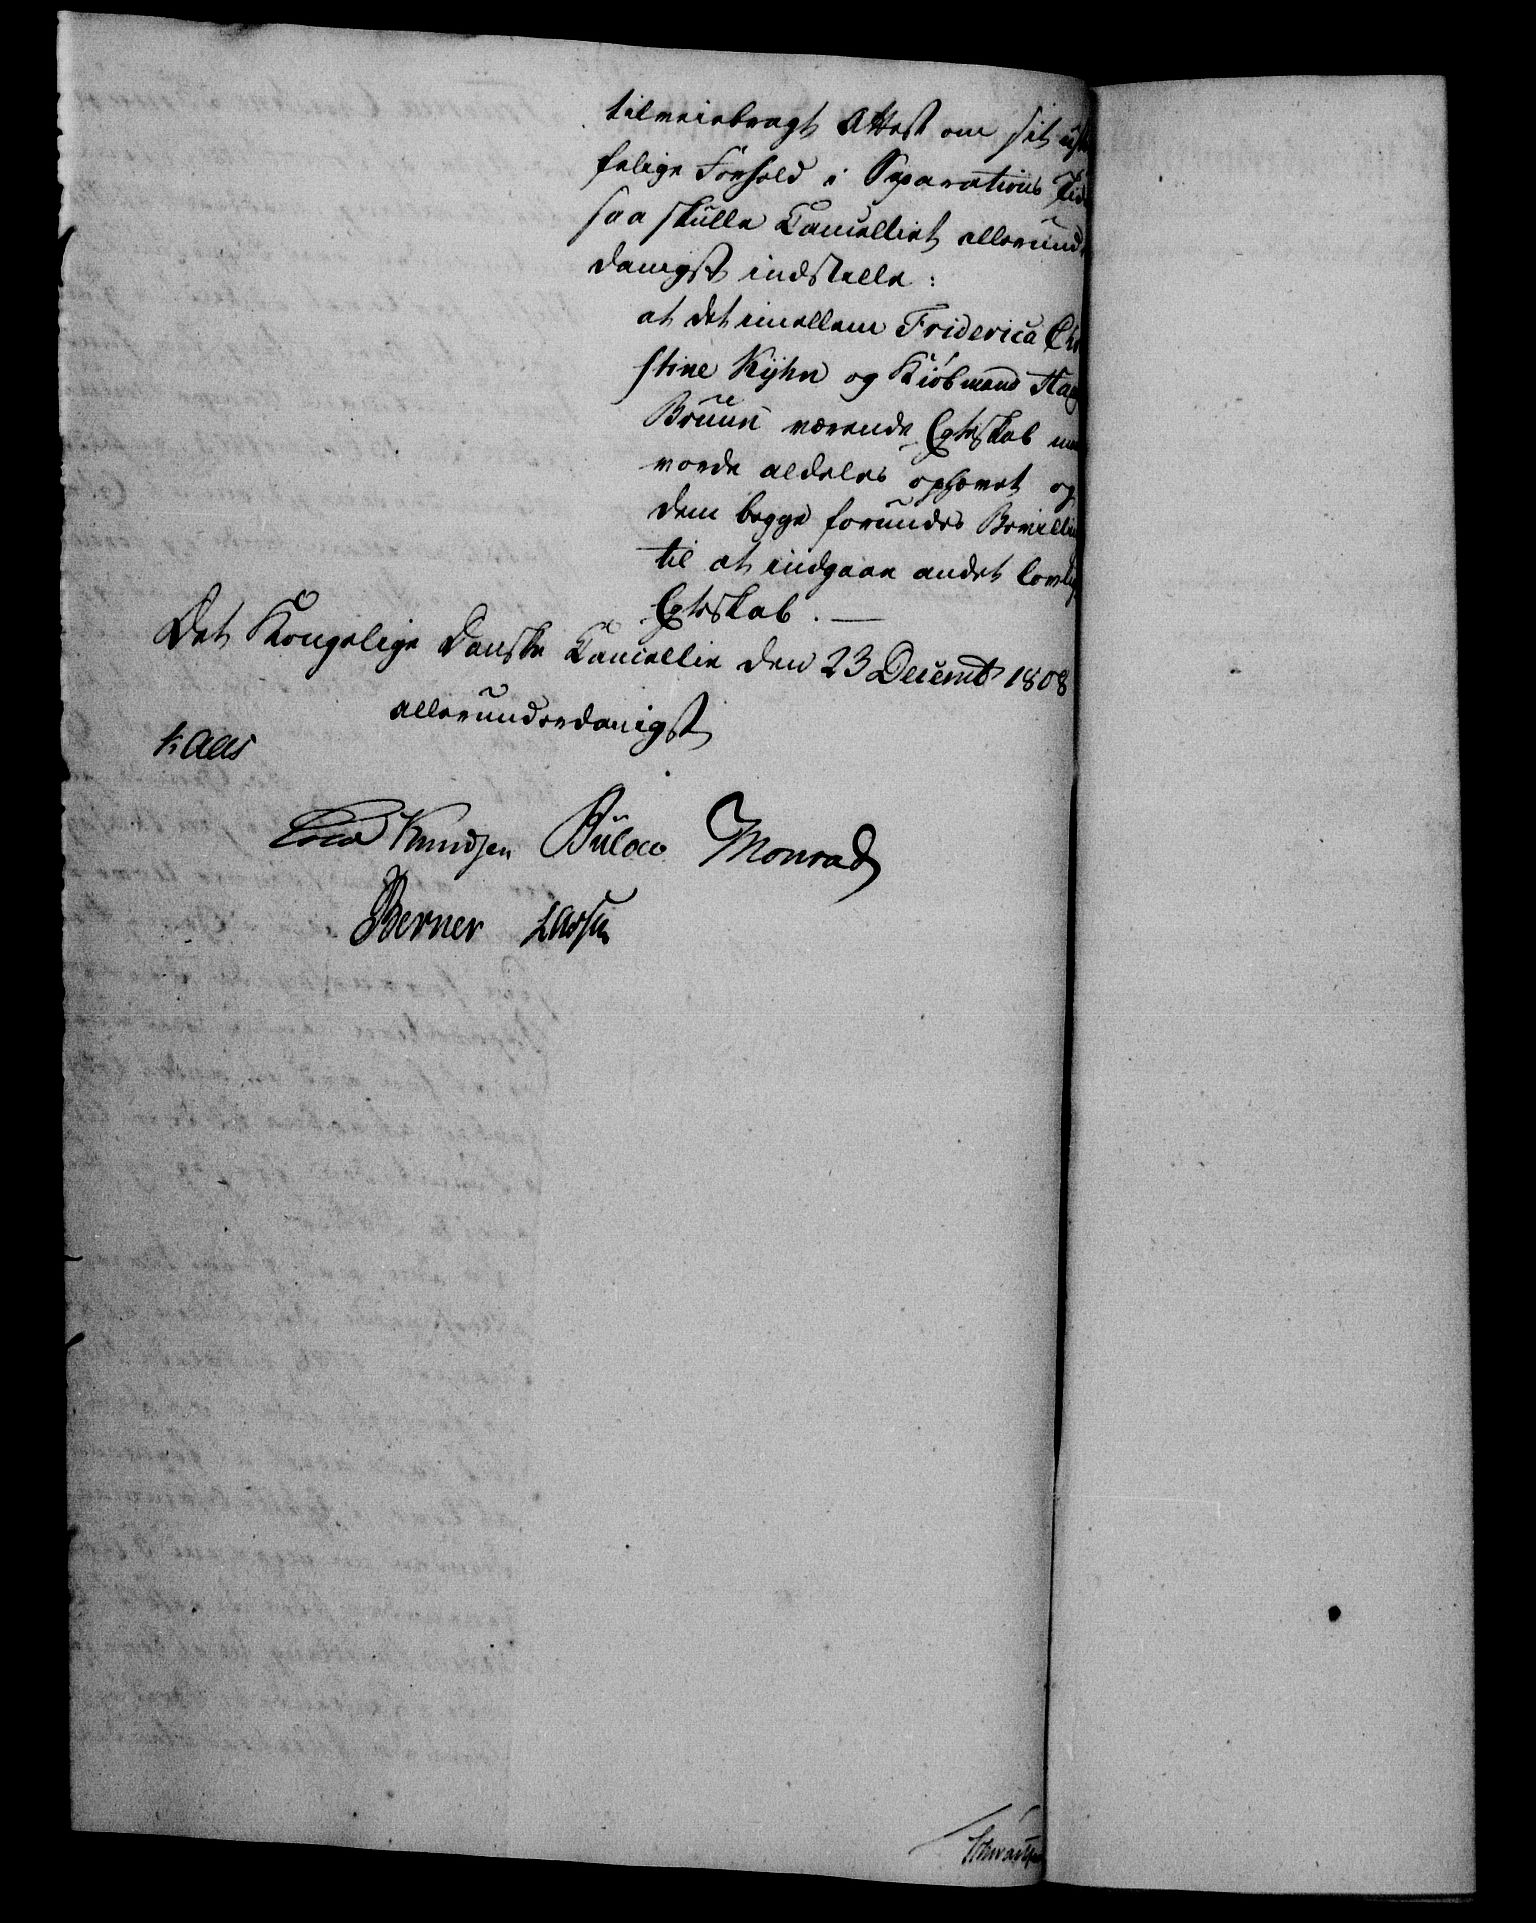 tilveiebragt Attest om sit
felige Forhold i Separations Tid
saa skulle Cancelliet allerund
danigst indstelle:
at det imellem Friderica Chri
stine Kyhn og Kiöbmand
Bruun værende Egteskab maa
vorde aldeles ophævet og
dem begge forundes Bevilling
til at indgaae andet lovlig
Egteskab. —
Det Kongelige Danske Cancellie den 23 Decembr 1808
allerunderdanigst
Kaas
Knudsen Bülow Monrad
Berner Lassen